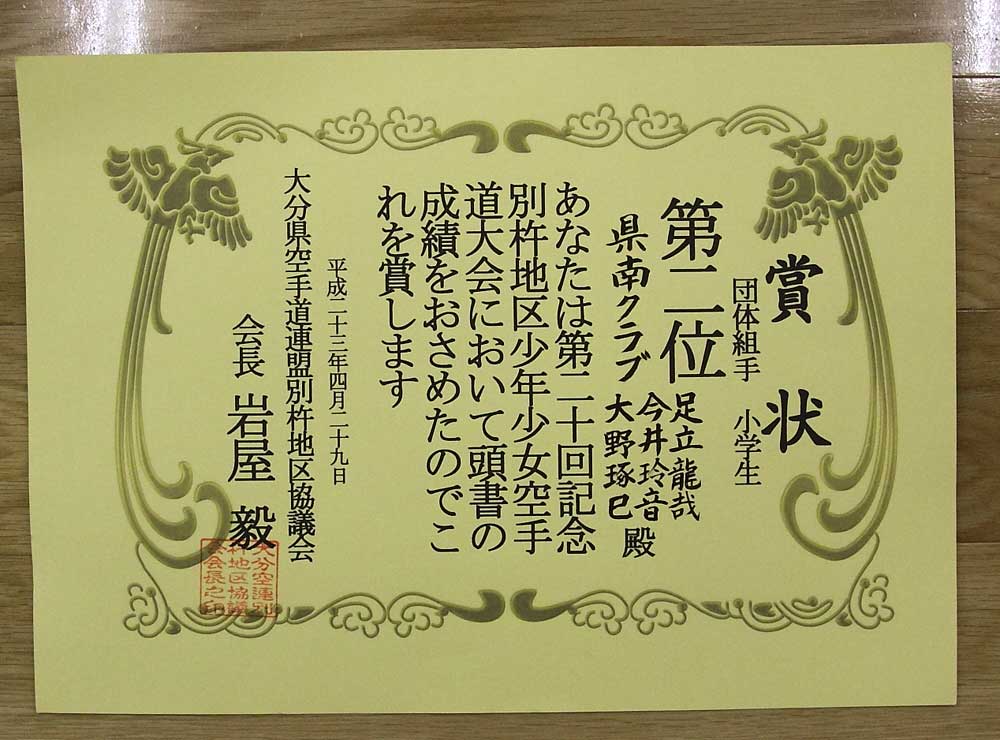 賞状
団体組手 小学生
第二位
足立龍哉
今井玲音
県南クラブ 大野琢巳 殿
あなたは第二十回記念
別杵地区少年少女空手
道大会において頭書の
成績をおさめたのでこ
れを賞します
平成二十三年四月二十九日
大分県空手道連盟別杵地区協議会
会長 岩屋 毅
大分空連別
杵地区協議
会会長之印